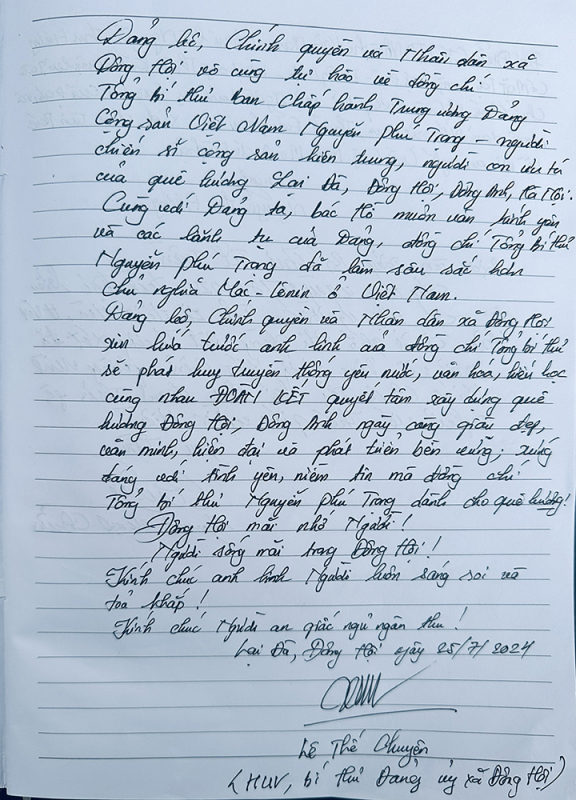 Đảng bộ, Chính quyền và Nhân dân xã
Đông Hội vô cùng tự hào về đồng chí
Tổng Bí thư Ban Chấp hành Trung ương Đảng
Cộng sản Việt Nam Nguyễn Phú Trọng - người
chiến sĩ cộng sản kiên trung, người con ưu tú
của quê hương Lại Đà, Đông Hội, Đông Anh, Hà Nội.
Cùng với Đảng ta, bác Hồ muôn vàn kính yêu
và các lãnh tụ của Đảng, đồng chí Tổng Bí thư
Nguyễn Phú Trọng đã làm sâu sắc hơn
Chủ nghĩa Mác-Lênin ở Việt Nam.
Đảng bộ, Chính quyền và Nhân dân xã Đông Hội
xin hứa trước anh linh của đồng chí Tổng bí thư
sẽ phát huy truyền thống yêu nước, văn hóa, hiếu học
cùng nhau ĐOÀN KẾT quyết tâm xây dựng quê
hương Đông Hội, Đông Anh ngày càng giàu đẹp,
văn minh, hiện đại và phát triển bền vững; xứng
đáng với tình yêu, niềm tin mà đồng chí
Tổng bí thư Nguyễn Phú Trọng dành cho quê hương!
Đông Hội mãi nhớ Người!
Người sống mãi trong Đông Hội!
Kính chúc anh linh Người luôn sáng soi và
toả khắp!
Kính chúc Người an giấc ngủ ngàn thu!
Lại Đà, Đông Hội ngày 25/7/2024
Lê Thế Chuyện
(HUV, bí thư Đảng ủy xã Đông Hội)